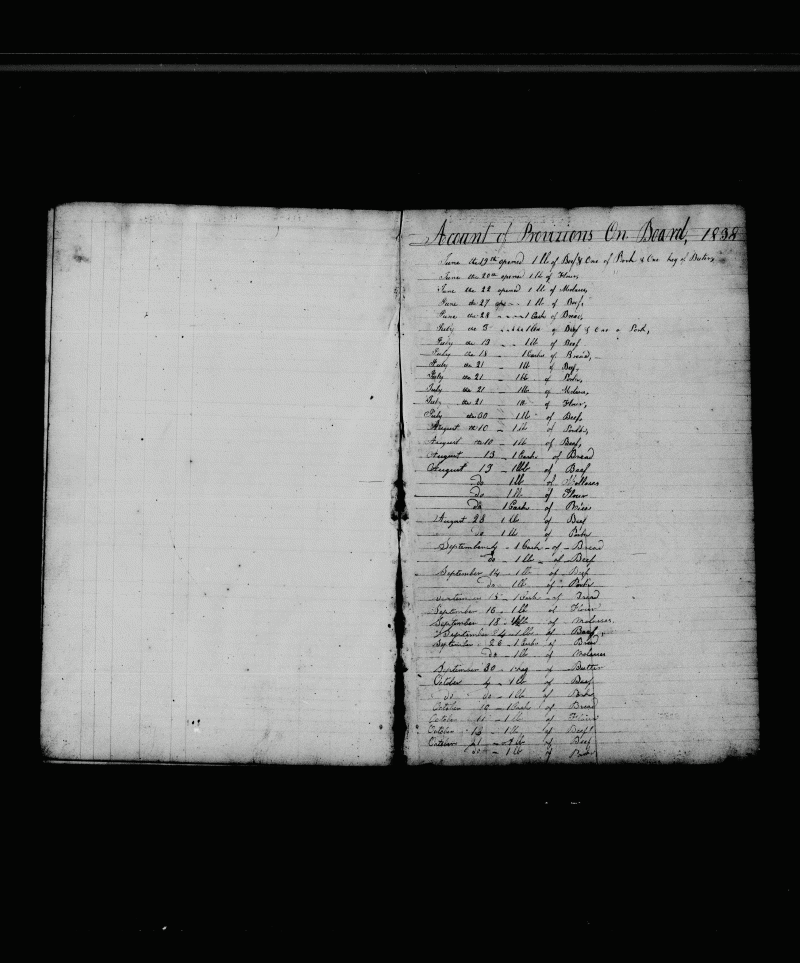 Account of Provisions On Board, 1838
June the 19th opened 1 lb of Beef & One of Pork & One keg of Butter,
June the 20th opened 1 lb of Flour,
June the 22 opened 1 lb of Molases,
June the 27 1 lb of Beef,
June the 28 1 Cask of Bread,
July the 3 1 lb of Beef & One Pork,
July the 13 1 lb of Beef
July the 18 1 Cask of Bread,
July the 21 1 lb of Beef,
July the 21 1 lb of Pork,
July the 21 1 lb of Molases,
July the 21 1 lb of Flour,
July the 30 1 lb of Beef,
August the 10 1 lb of
August the 10 1 lb of Beef,
August 13 1 Cask of Bread
August 13 1 lb of Beef
do 1 lb of Mollases
Do 1 lb of Flour
do 1 Cask of Rice
August 23 1 lb of Beef
do 1 lb of Pork
September 4 1 Cask of Bread
Do 1 lb of Beef
September 14 1 lb of Beef
Do 1 lb of Pork
September 15 1 Cask of Bread
September 16 1 lb of Flour
September 18 1 lb of Molases
September 24 1 lb of Beef,
September 26 1 Cask of Bread
Do 1 lb of Molases
September 30 1 keg of Butter
October 4 1 lb of Beef
do do 1 lb of Pork
October 10 1 Cask of Bread
October 11 1 lb of Flour
October 13 1 lb of Beef
October 21 1 lb of Beef
do 1 lb of